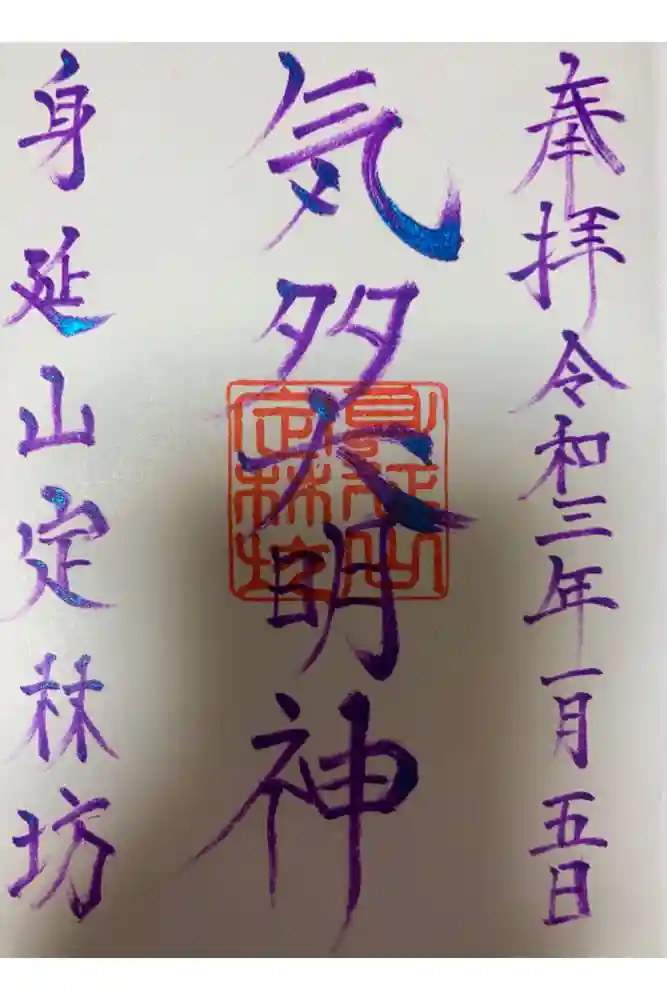 奉拝 令和三年一月五日
気多大明神
身延山定林坊
身延山
定林坊